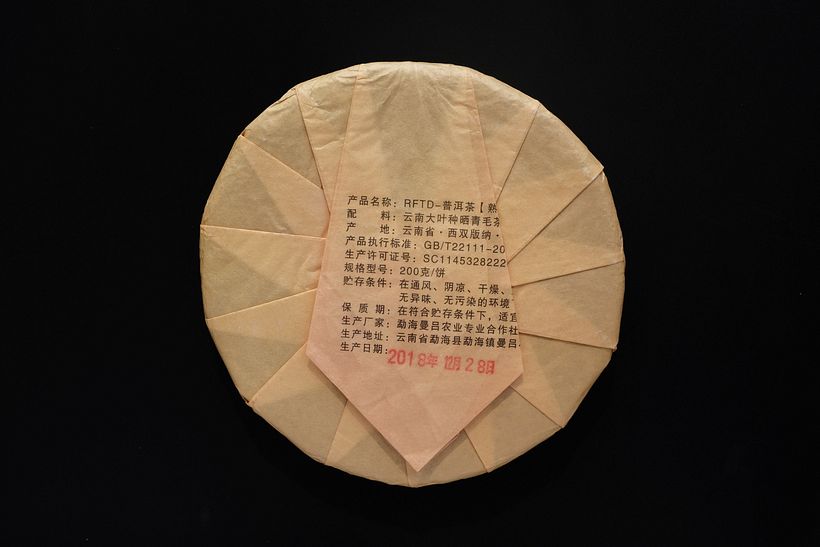 产品名称：RFTD-普洱茶【熟
配　　料：云南大叶种晒青毛茶
产　　地：云南省·西双版纳·
产品执行标准：GB/T22111-20
生产许可证号：SC1145328222
规格型号：200克/饼
贮存条件：在通风、阴凉、干燥、
无异味、无污染的环境
保 质 期：在符合贮存条件下，适宜
生产厂家：勐海曼吕农业专业合作社
生产地址：云南省勐海县勐海镇曼吕
生产日期：2018年 12月 28日